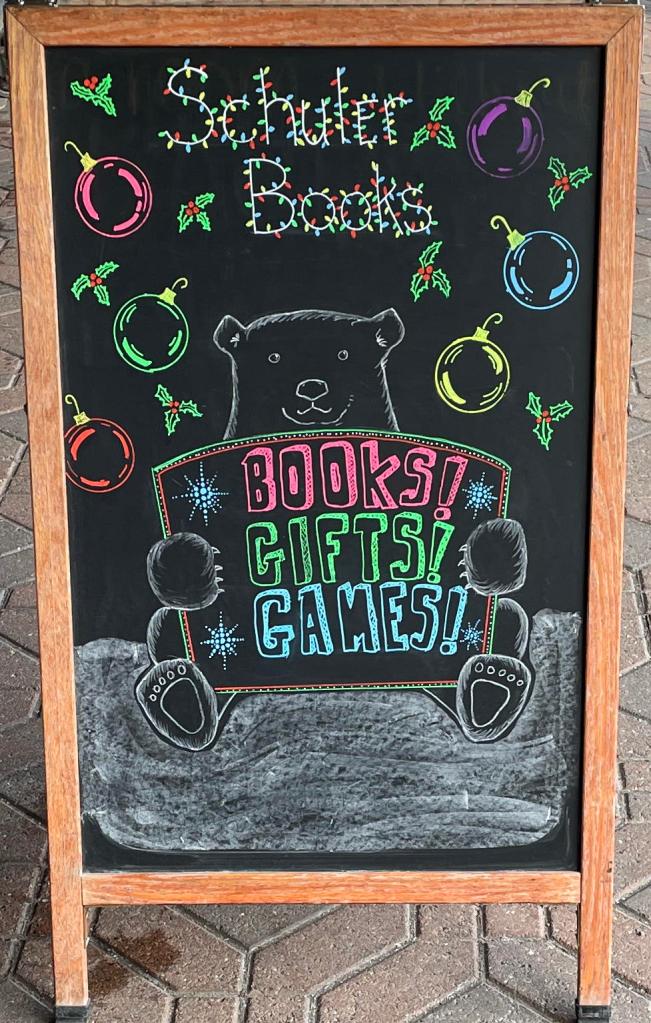 Schuler
Books
BOOKS!
GIFTS!
GAMES!